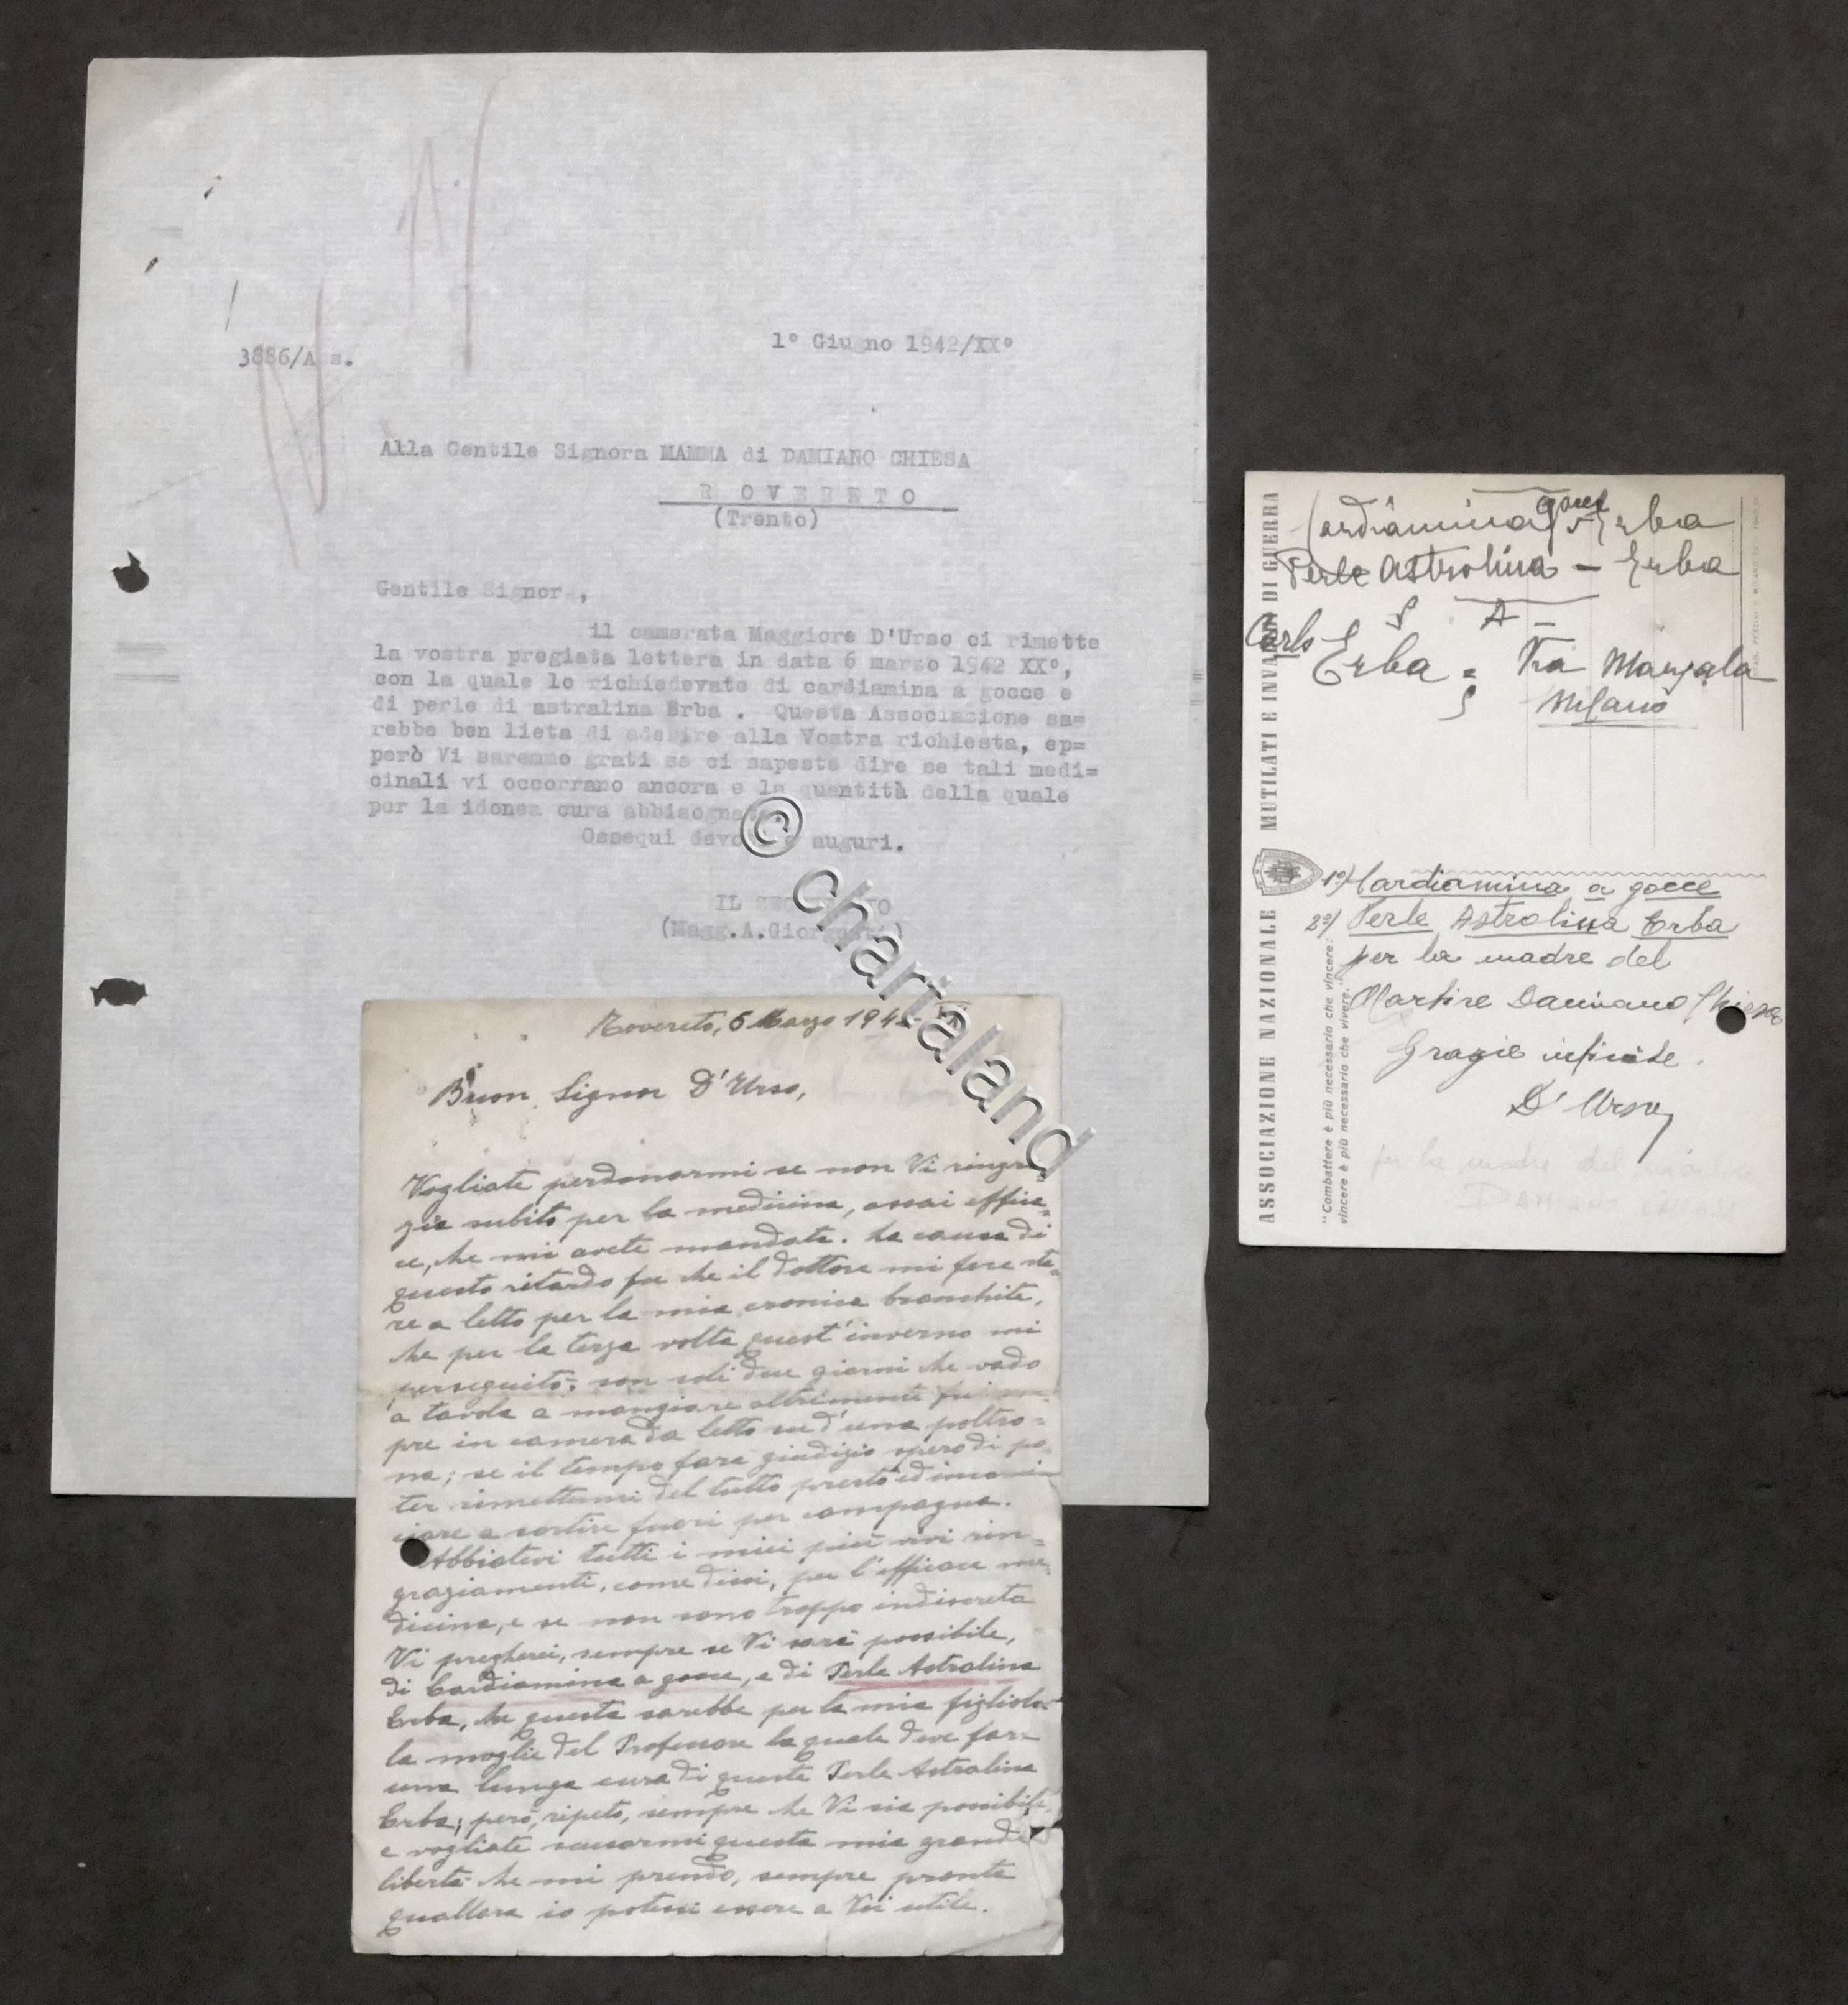 3886/A s.
1° Giugno 1942/XX°
Alla Gentile Signora MAMMA di DAMIANO CHIESA
R O V E R E T O
(Trento)
Gentile Signor ,
il camerata Maggiore D'Urso ci rimette
la vostra pregiata lettera in data 6 marzo 1942 XX°,
con la quale lo richiedevate di cardiamina a gocce e
di perle di astralina Erba . Questa Associazione sa=
rebbe ben lieta di aderire alla Vostra richiesta, ep=
però Vi saremmo grati se ci sapeste dire se tali medi=
cinali vi occorrano ancora e la quantità della quale
per la idonea cura abbisognate.
Ossequi devoti e auguri.
IL SEGRETARIO
(Magg.A.
© chartaland
Rovereto, 6 Marzo 194
Buon Signor D'Urso,
Vogliate perdonarmi se non Vi ringra
zia subito per la medicina, assai effica=
ce, che mi avete mandata. La causa di
questo ritardo fu che il dottore mi fece sta=
re a letto per la mia cronica bronchite,
che per la terza volta quest'inverno mi
perseguitò; son soli due giorni che vado
a tavola a mangiare altrimenti fui
pre in camera da letto su d'una poltro=
na; se il tempo farà giudizio spero di po
ter rimettermi del tutto presto ed incomin
ciare a sortire fuori per campagna.
Abbiatevi tutti i miei più vivi rin=
graziamenti, come dissi, per l'efficace me=
dicina, e se non sono troppo indiscreta
Vi pregherei, sempre se Vi sarà possibile,
di Cardiamina a gocce, e di Perle Astralina
Erba, che questa sarebbe per la mia figliola
la moglie del Professore la quale deve fare
una lunga cura di queste Perle Astralina
Erba; però, ripeto, sempre che Vi sia possibile
e vogliate scusarmi questa mia grande
libertà che mi prendo, sempre pronta
quallora io potessi essere a Voi utile.
ASSOCIAZIONE NAZIONALE MUTILATI E INVALIDI DI GUERRA
"Combattere è più necessario che vincere:
vincere è più necessario che vivere."
Cardiamina gocce Erba
Perle Astrolina - Erba
S A -
Carlo Erba = Via Marsala
Milano
1°) Cardiamina a gocce
2°) Perle Astrolina Erba
per la madre del
Martire Damiano Chiesa
Grazie infinite.
D'Urso
per la madre del